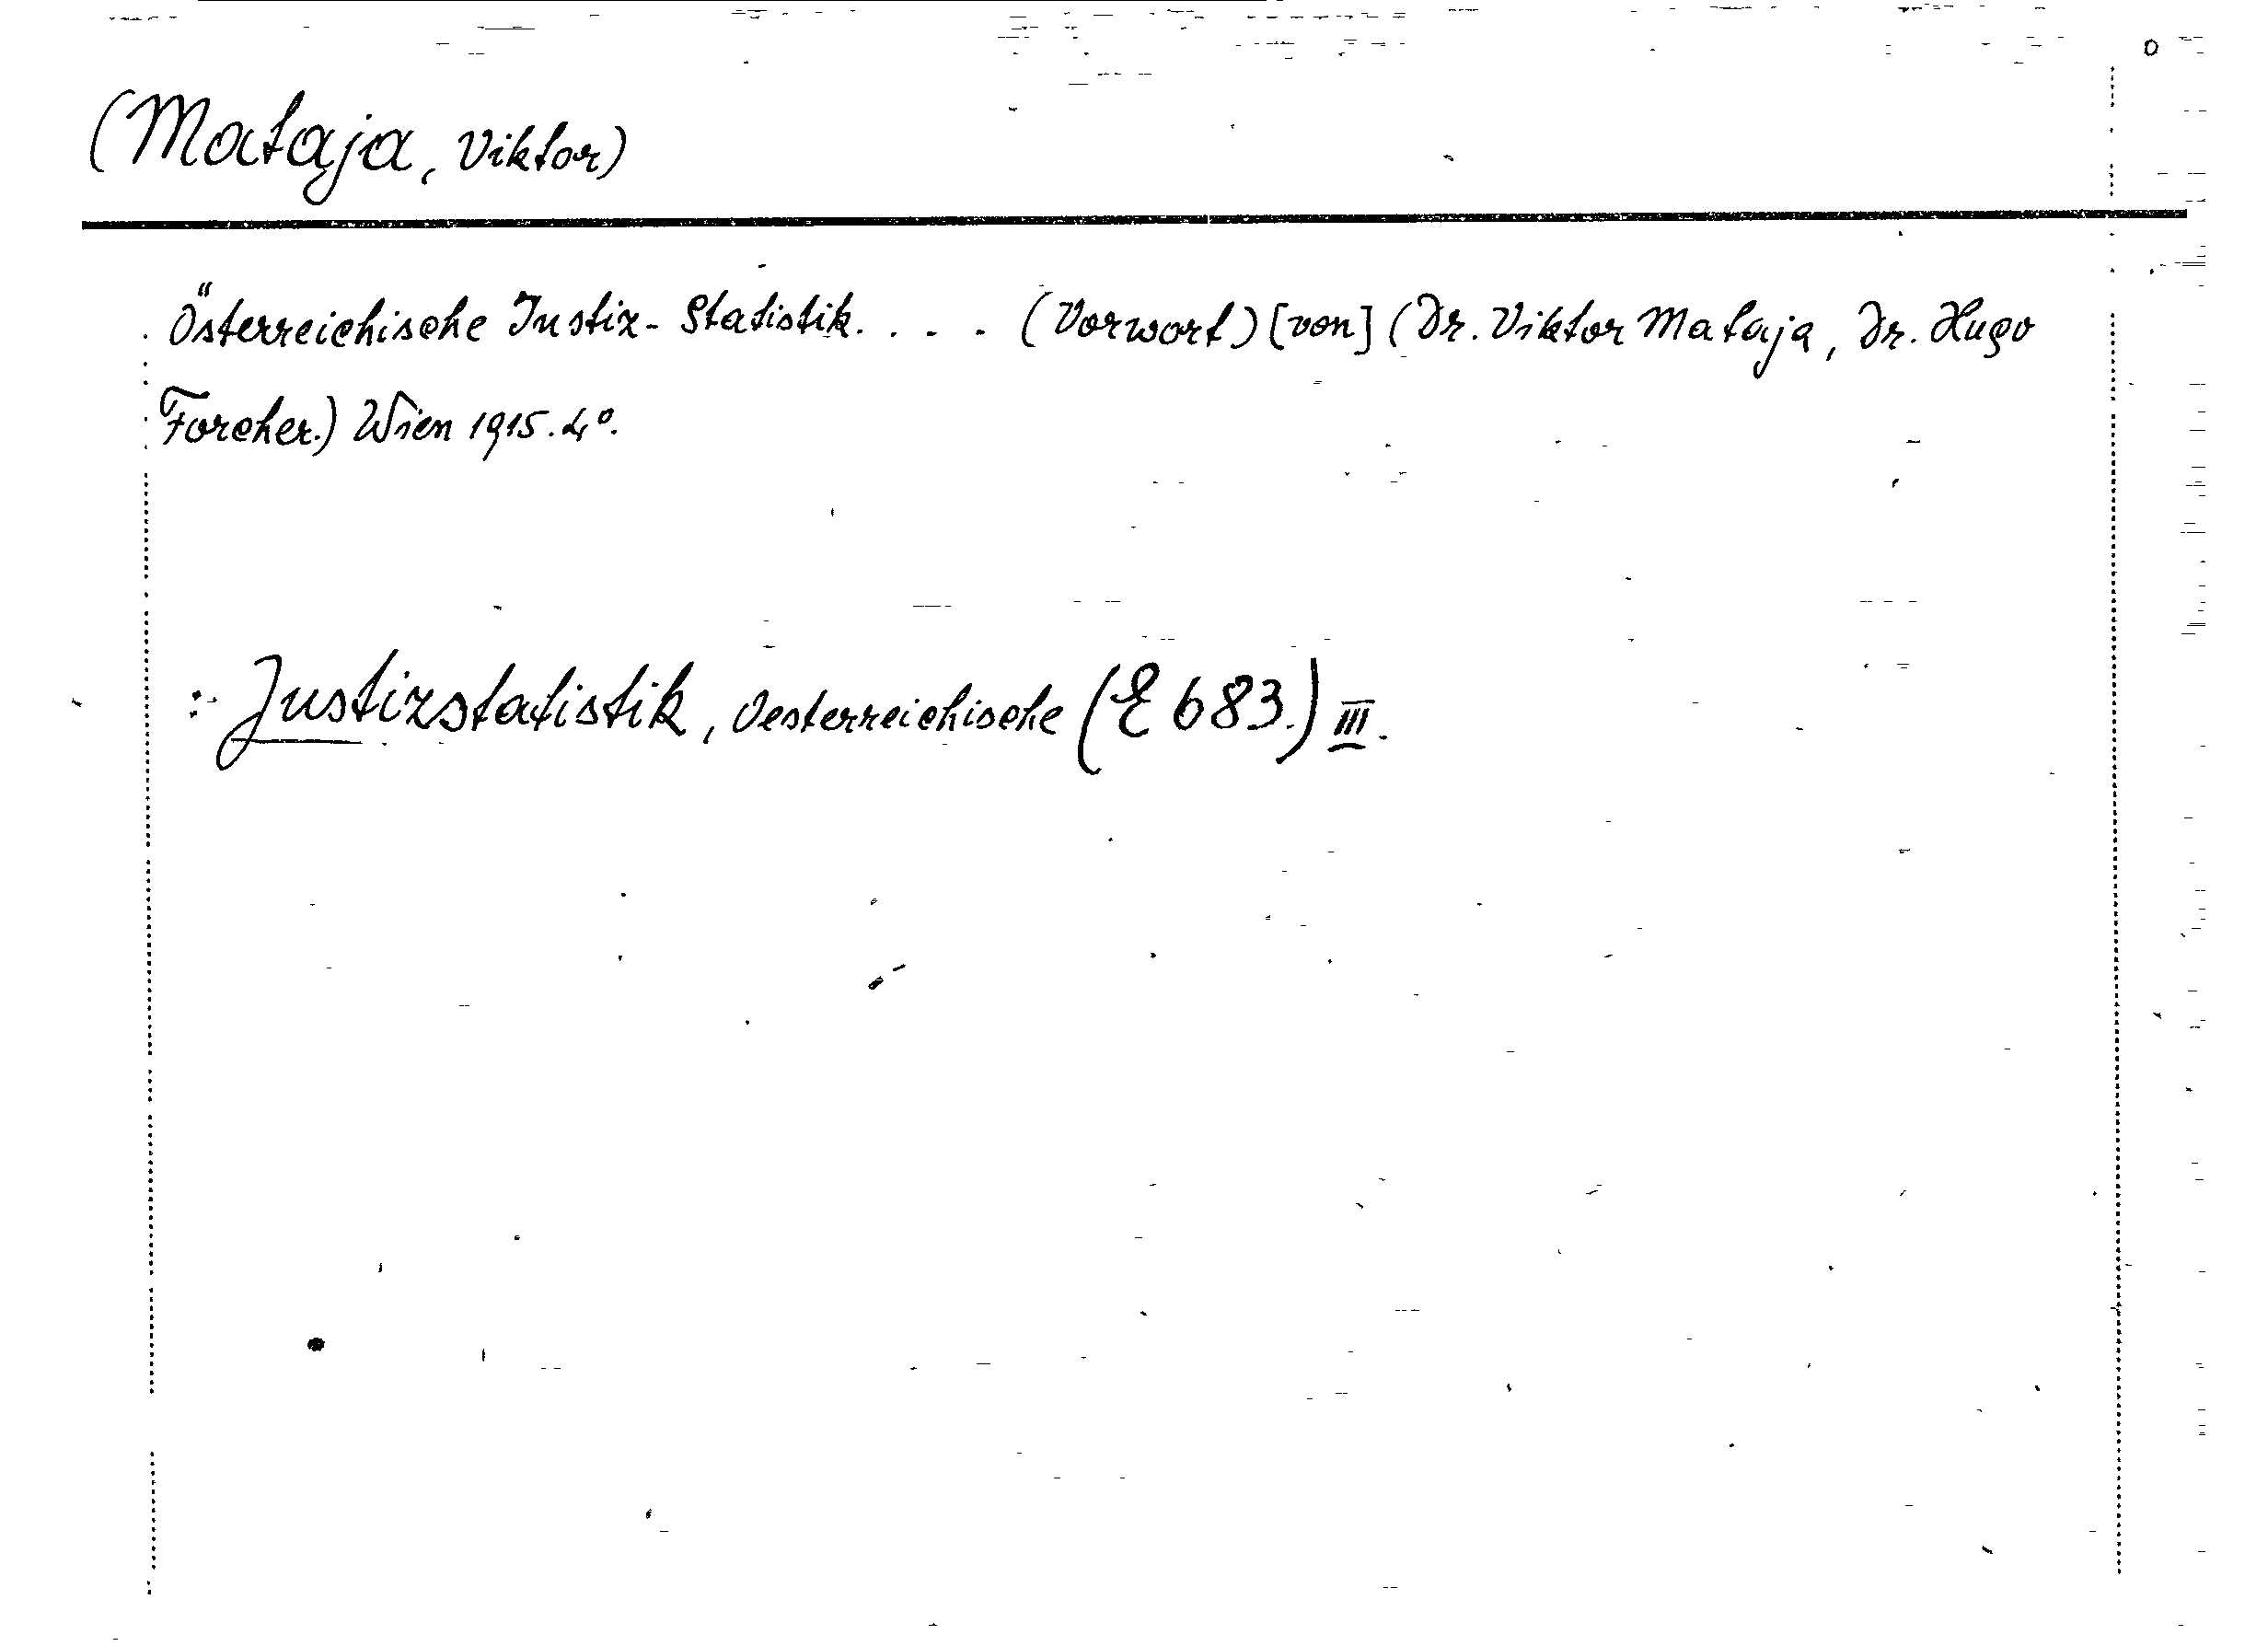 (Mataja, Viktor)
Österreichische Justiz-Statistik. . . . (Vorwort) [von] (Dr. Viktor Mataja, Dr. Hugo
Forcher.) Wien 1915. 4°.
:- Justizstatistik, Oesterreichische (E 683.) III.